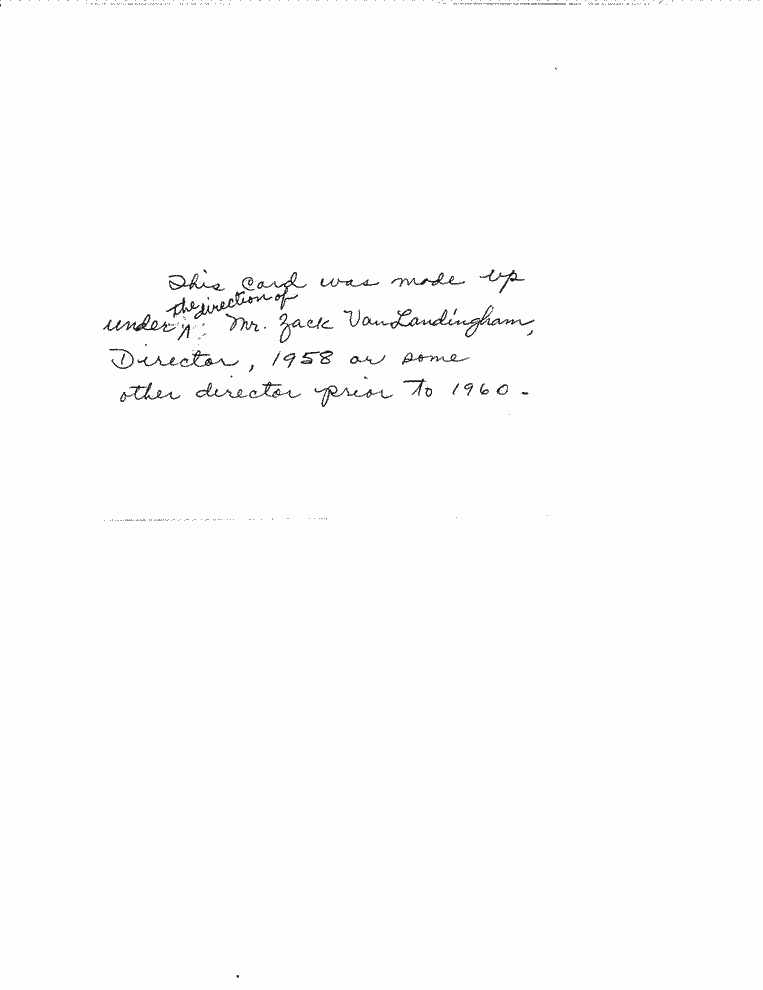 This card was made up
the direction of
under Mr. Zack VanLandingham,
Director, 1958 or some
other director prior to 1960.